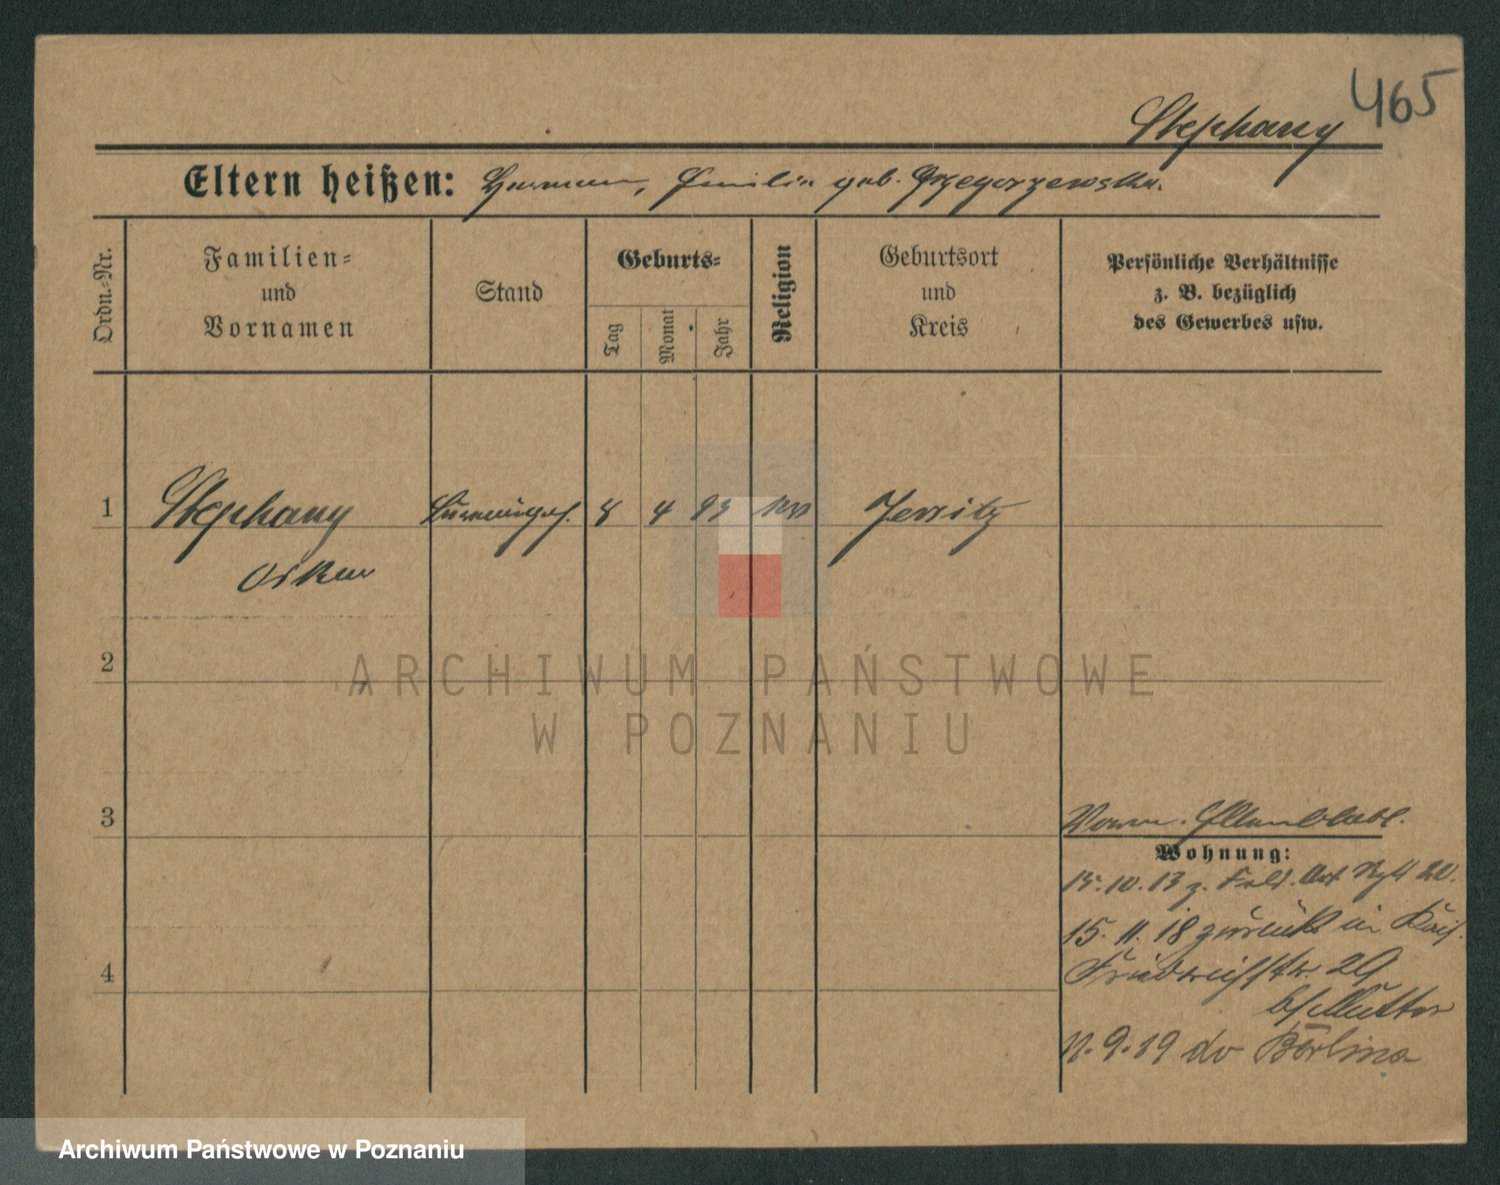 465
Stephany
Eltern heißen: Hermann, Emilie geb. Grzegorzewska.
Ordn.-Nr.
Familien-
und
Vornamen
Stand
Geburts-
Tag
Monat
Jahr
Religion
Geburtsort
und
Kreis
Persönliche Verhältnisse
z. B. bezüglich
des Gewerbes usw.
1 Stephany 8 4 93 Jersitz
Oskar
2
3
Wohnung:
15.10.13 z. Feld. Art. 20.
15.11.18 zurück in Kais.
Friedrichstr. 29
b/Mutter
4
11.9.19 do Berlina
ARCHIWUM PAŃSTWOWE
W POZNANIU
Archiwum Państwowe w Poznaniu